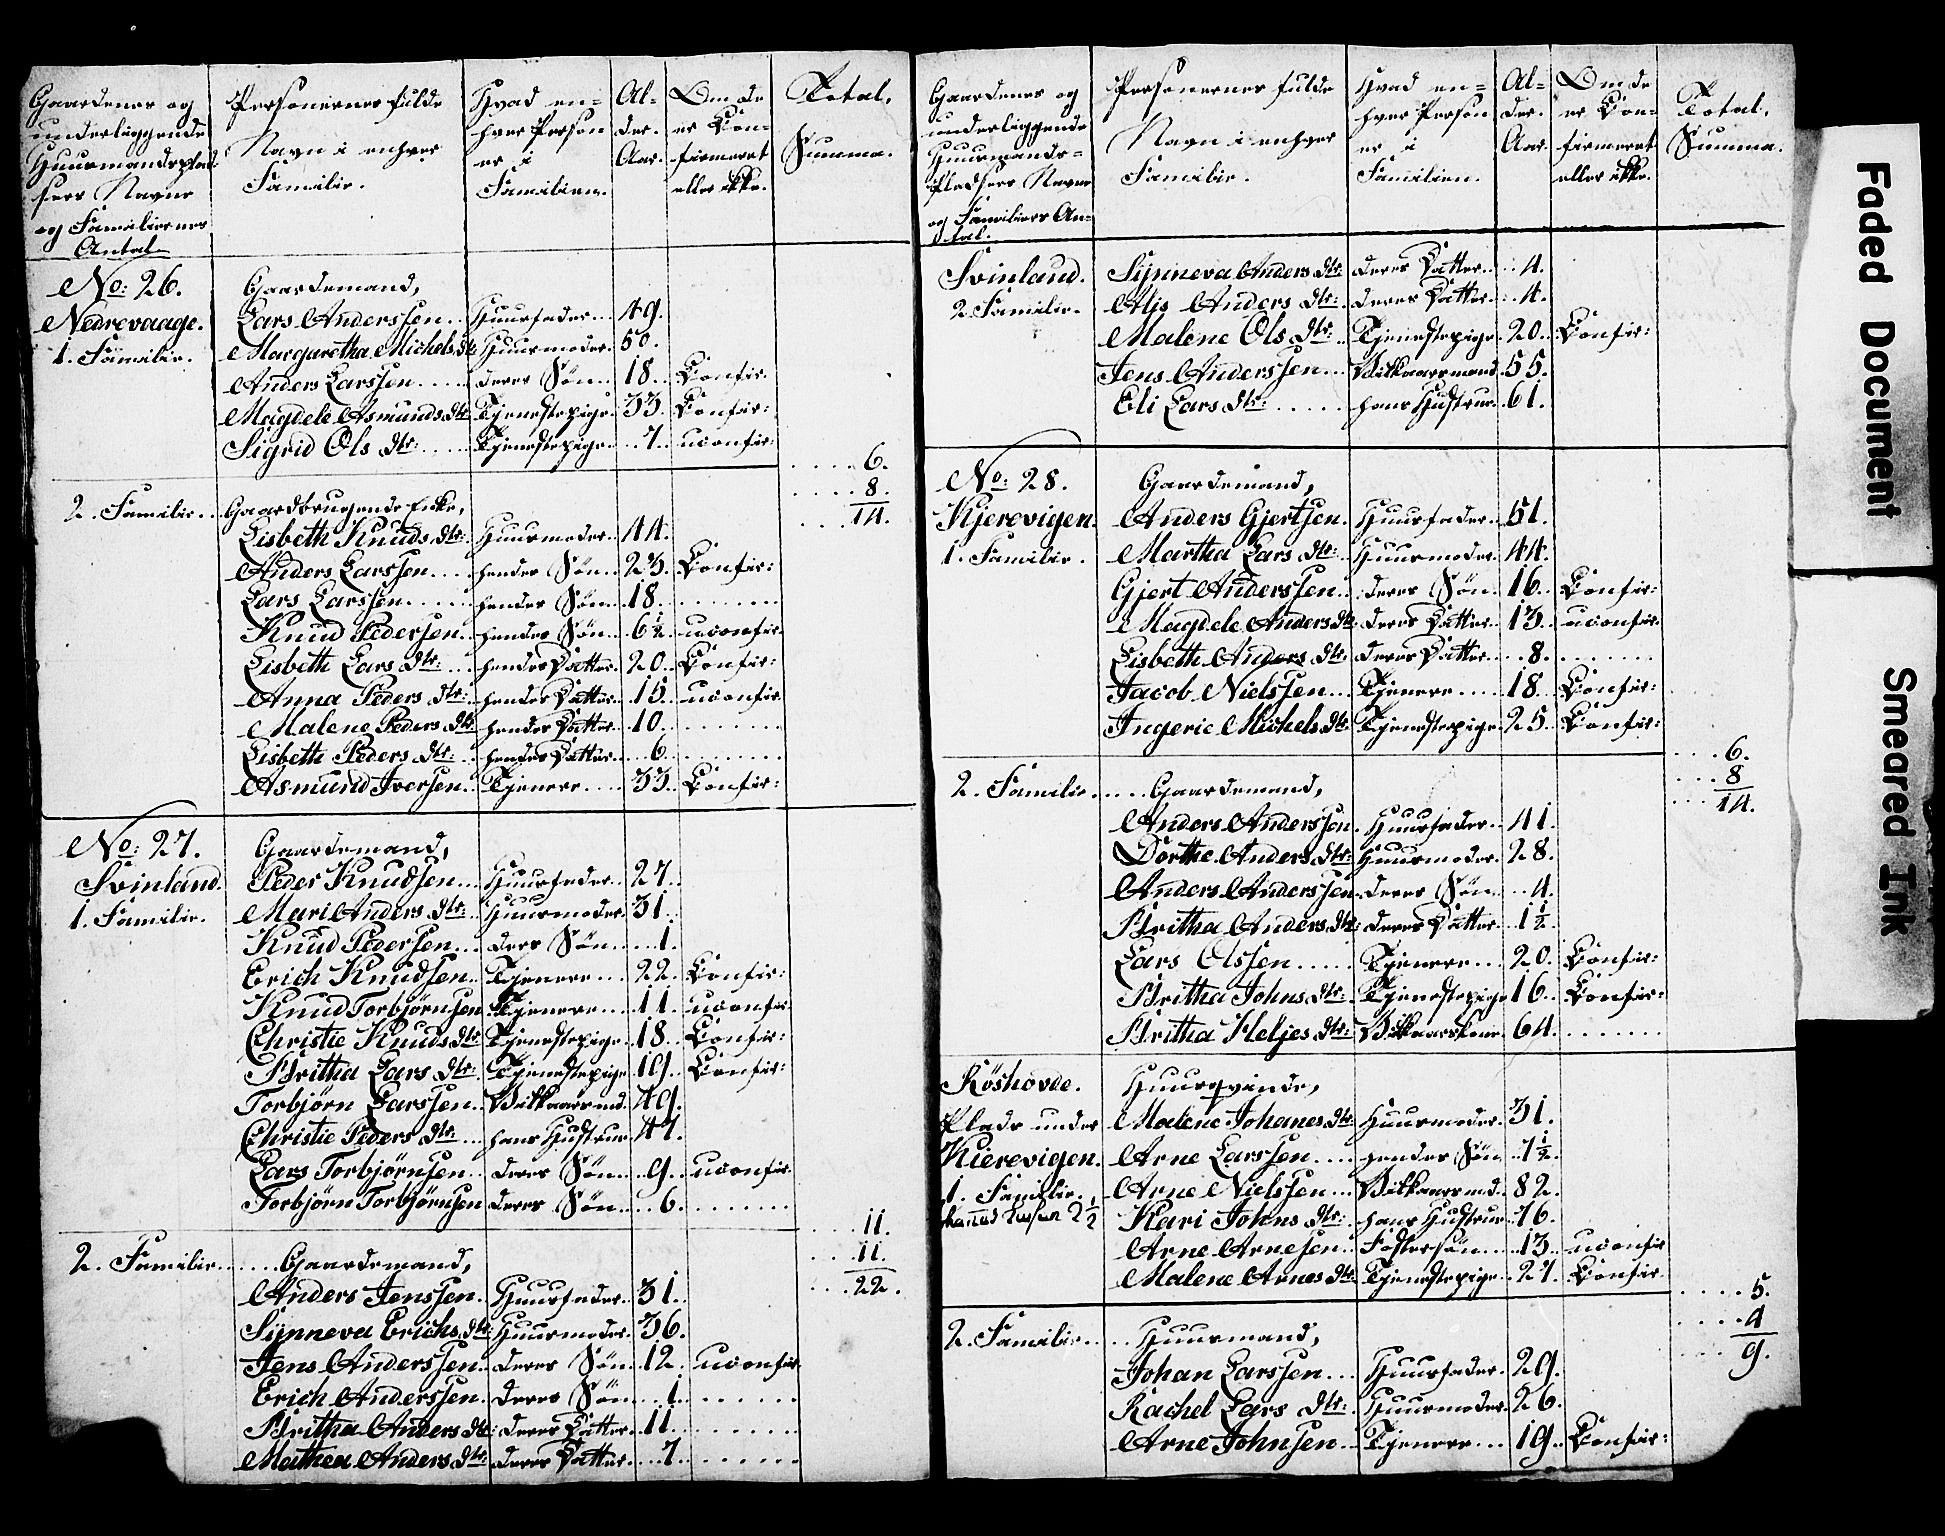 Gaardenes og
underliggende
Huusmandsplad-
sers Navne
og Familiernes
Antal
Personernes fulde
Navn i enhver
Familie.
Hvad en-
hver Person
er i
Familien.
Al-
der.
Aar.
Om de
er Con-
firmeret
eller ikke.
Total.
Summa.
No: 26. Gaardemand,
Nedrevaage. Lars Anderssen.. Huusfader.. 49.
1. Familie. Margaretha Michels dtr Huusmoder. 50.
Anders Larssen..... deres Søn.. 18.. Confir.
Magdele Asmunds dtr. Tjenestepige. 33. Confir:
Sigrid Ols dtr:..... Tjenestepige... 7.. uconfir:
.....6.
.....8.
...14.
2. Familie... Gaardbrugende Enke,
Lisbeth Knuds dtr: Huusmoder.. 44.
Anders Larssen.... hendes Søn.. 23. Confir:
Lars Larssen...... hendes Søn.. 18.........
Knud Pedersen. hendes Søn.. 6½. uconfir.
Lisbeth Lars dtr:.... hendes Datter. 20.. Confir:
Anna Peders dtr: hendes Datter. 15. uconfir
Malene Peders dtr hendes Datter. 10........
Lisbeth Peders dtr:.. hendes Datter. 6........
Asmund Iversen. Tjenere.... 33.. Confir:
No: 27. Gaardemand,
Svinland. Peder Knudsen... Huusfader.. 27.
1. Familie. Mari Anders dtr: Huusmoder. 31.
Knud Pedersen... deres Søn.... 1.
Erich Knudsen. Tjenere.... 22.. Confir:
Knud Torbjørnsen Tjenere.... 11.. uconfir.
Christie Knuds dtr Tjenestepige. 18.. Confir:
Britha Lars dtr: Tjenestepige 19.. Confir:
Torbjørn Larssen.. Vilkaarsmd. 49.
Christie Peders dtr:... hans Hustrue 47.
Lars Torbjørnsen.. deres Søn.. 9.. uconfir
Torbjørn Torbjørnsen deres Søn... 6........
11.
...11.
...22.
2. Familie...... Gaardemand,
Anders Jenssen. Huusfader.. 31.
Synneva Erichs dtr: Huusmoder. 36.
Jens Anderssen.. deres Søn.. 12.. uconfir
Erich Anderssen. deres Søn... 1........
Britha Anders dtr: deres Datter.. 11........
Mathea Anders dtr: deres Datter... 7........
Gaardenes og
underliggende
Huusmands-
Pladsers Navne
og Familiers An-
tal.
Personernes fulde
Navn i enhver
Familie.
Hvad en-
hver Person
er i
Familien.
Al-
der.
Aar.
Om de
er Con-
firmeret
eller ikke.
Total.
Summa.
Svinland. Synneva Anders dtr: deres Datter... 4.
2. Familie. Alis Anders dtr: deres Datter... 4.
Malene Ols dtr:.. Tjenestepige. 20.. Confir:
Jens Anderssen... Vilkaarsmand. 55.
Eli Lars dtr:..... hans Hustrue. 61.
No: 28. Gaardemand,
Kjerevigen. Anders Gjertsen. Huusfader.. 51.
1. Familie. Martha Lars dtr: Huusmoder. 44.
Gjert Anderssen.. deres Søn. 16.. Confir:
Magdele Anders dtr deres Datter.. 13.. uconfir.
Lisbeth Anders dtr: deres Datter.... 8........
Jacob Nielssen... Tjenere.... 18.. Confir:
Ingerie Michels dtr: Tjenestepige 25.. Confir:
...6.
...8
...14.
2. Familie...... Gaardemand,
Anders Anderssen. Huusfader.. 41.
Dorthe Anders dtr: Huusmoder. 28.
Anders Anderssen deres Søn... 4.
Britha Anders dtr: deres Datter.. 1½
Lars Olssen...... Tjenere... 20.. Confir:
Britha Johns dtr: Tjenestepige 16.. Confir:
Britha Heljes dtr: Vilkaarskone. 64........
Röshovde. Huusqvinde,
Plads under Malene Johanes dtr: Huusmoder. 31.
Kierevigen. Arne Larssen.... hendes Søn. 7½.
1. Familie. Arne Nielssen... Vilkaarsmd. 82.
Kari Johns dtr: hans Hustrue. 76.
Arne Arnesen.. Fostersøn.... 13.. uconfir
Malene Arnes dtr. Tjenestepige.. 27. Confir.
.....5.
.....4
....9.
2. Familie.... Huusmand,
Johan Larssen.. Huusfader. 29.
Rachel Lars dtr:. Huusmoder. 26.
Arne Johnsen... Tjenere... 19.. Confir:
Faded Document
Smeared Ink